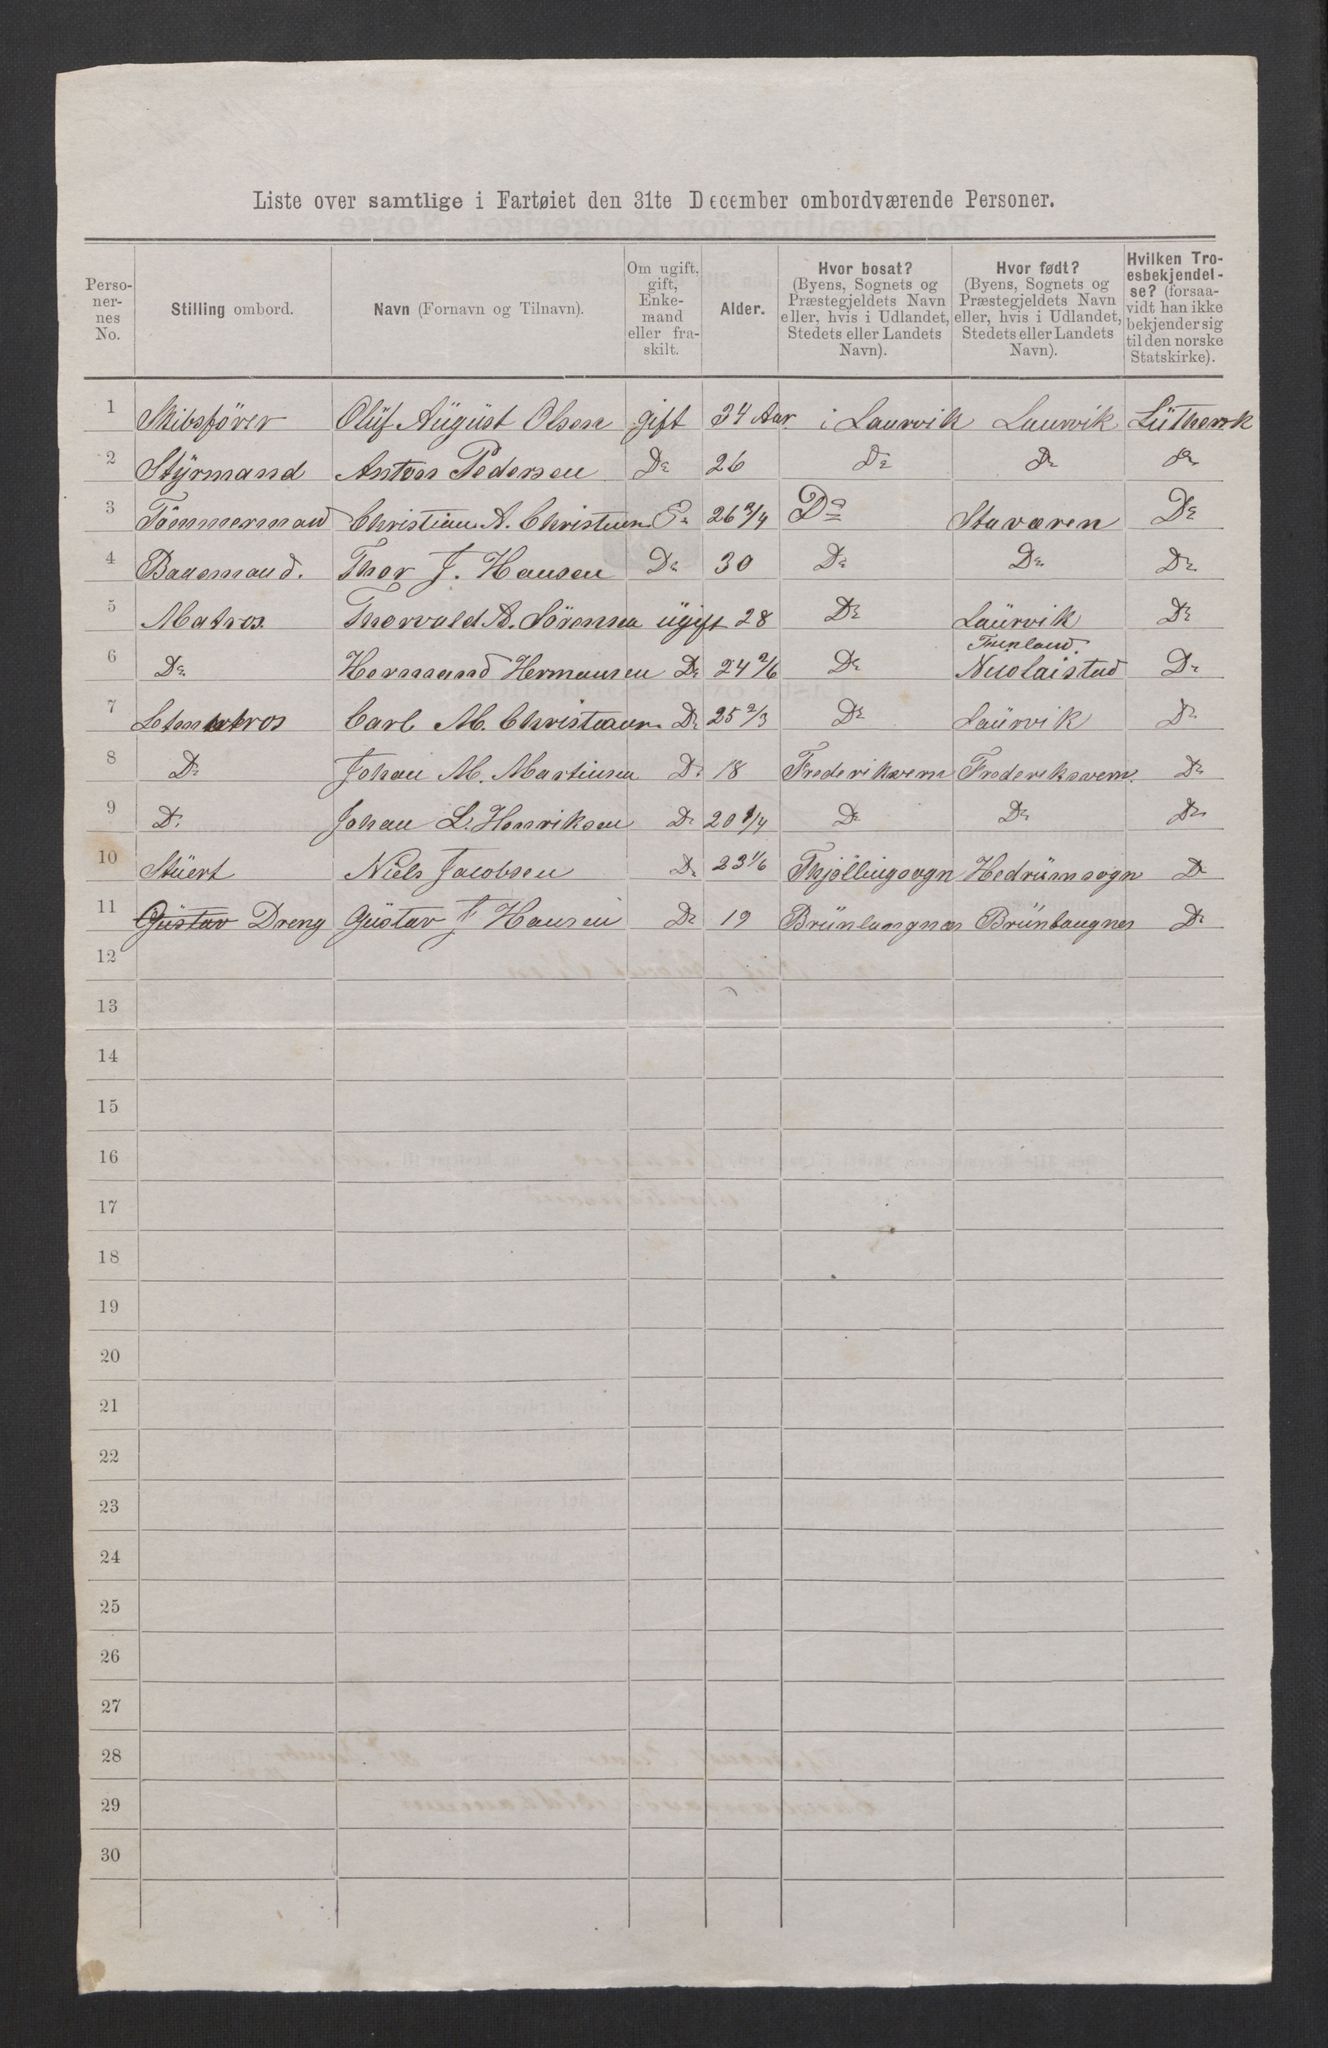 Liste over samtlige i Fartøiet den 31te December ombordværende Personer.
Perso-
ner-
nes
No.
Stilling ombord.
Navn (Fornavn og Tilnavn).
Om ugift,
gift,
Enke-
mand
eller fra-
skilt.
Alder.
Hvor bosat?
(Byens, Sognets og
Præstegjeldets Navn
eller, hvis i Udlandet,
Stedets eller Landets
Navn).
Hvor født?
(Byens, Sognets og
Præstegjeldets Navn
eller, hvis i Udlandet,
Stedets eller Landets
Navn).
Hvilken Tro-
esbekjendel-
se? (forsaa-
vidt han ikke
bekjender sig
til den norske
Statskirke).
1 Skibsförer Olüf Aügüst Olsen gift 34 Aar i Laurvik Laurvik Lütherk
2 Styrmand Anton Pedersen Do 26 Do Do Do
3 Tömmermand Christian A. Christiansen Do 26 3/4 Do Staværen Do
4 Baadsmand. Thor J. Hansen Do 30 Do Do Do
5 Matros Thorvald A. Sörensen ügift 28 Do Laürvik Do
Finland.
6 Do Hermand Hermansen Do 24 2/6 Do Nicolaistad Do
7 Letmatros Carl M. Christiansen Do 25 2/3 Do Laürvik Do
8 Do Johan M. Martinsen Do 18 Frederiksværn Frederiksværn Do
9 Do Johan L. Henriksen Do 20 1/4 Do Do Do
10 Stüert Niels Jacobsen Do 23 1/6 Thjöllingsogn Hedrümsogn Do
11 Güstav Dreng Güstav J Hansen Do 19 Brünlangnæs Brünlaugnes Do
12
13
14
15
16
17
18
19
20
21
22
23
24
25
26
27
28
29
30